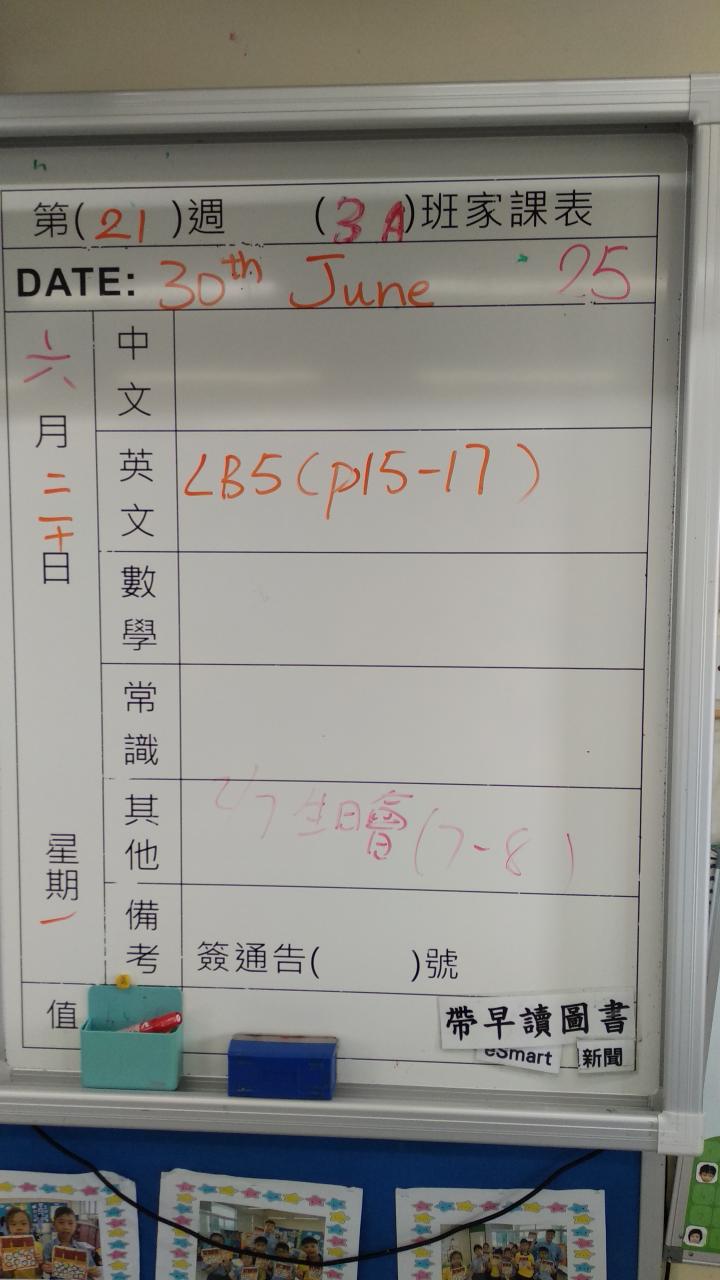 第(21)週 (3A)班家課表
DATE: 30th June 25
六月三十日 星期一
中文
英文 LB5(p15-17)
數學
常識
其他 2/7 生日會(7-8)
備考 簽通告( )號
值
帶早讀圖書
eSmart 新聞